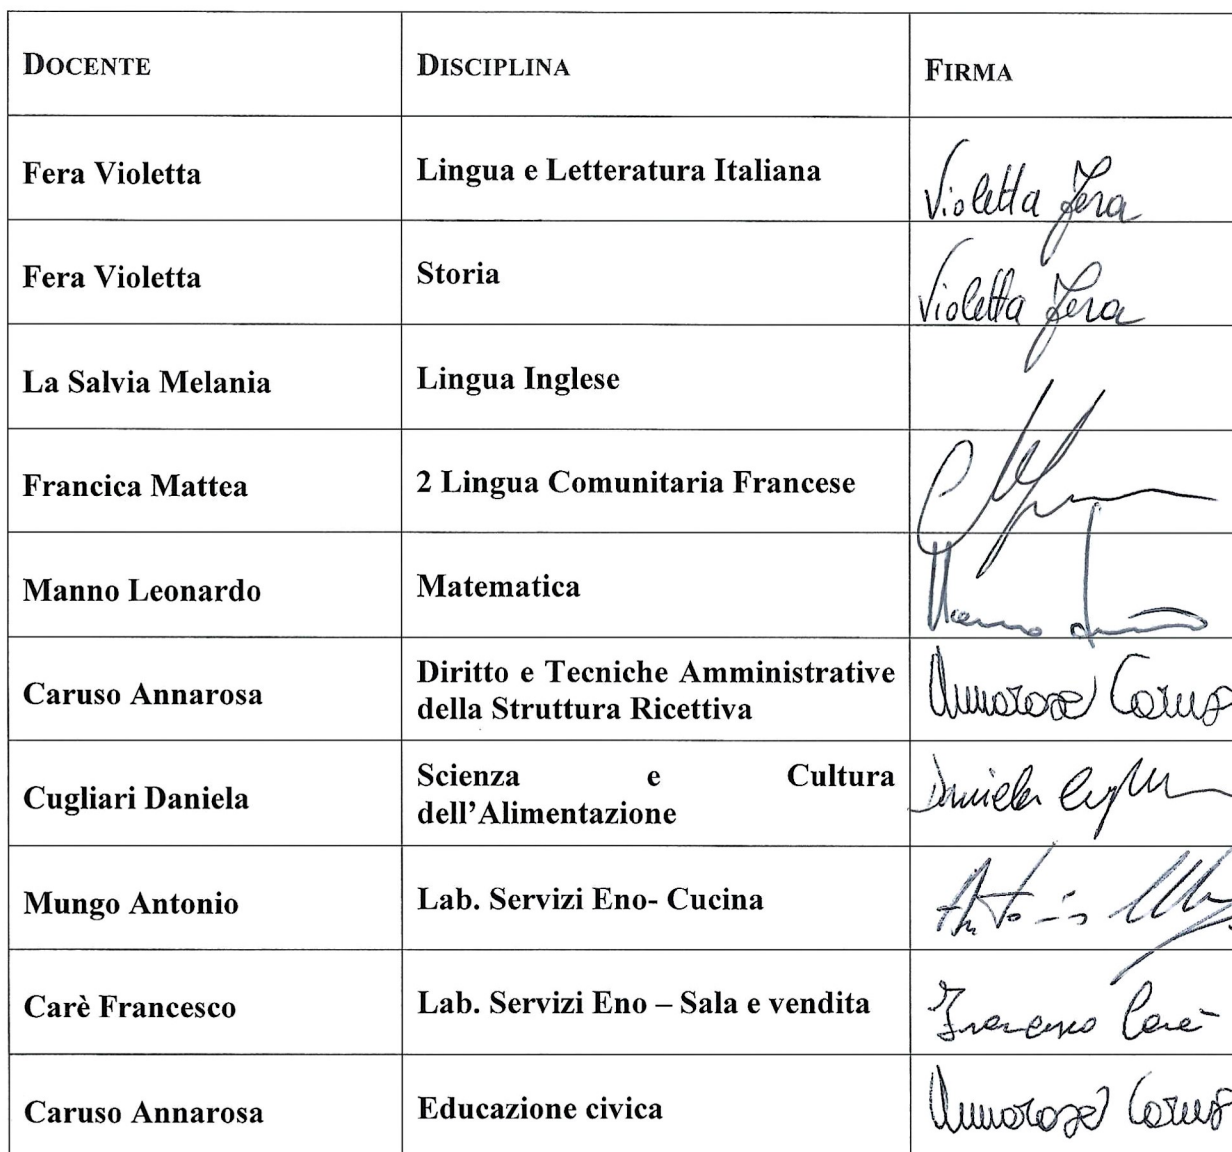 DOCENTE DISCIPLINA FIRMA
Fera Violetta Lingua e Letteratura Italiana Violetta Fera
Fera Violetta Storia Violetta Fera
La Salvia Melania Lingua Inglese
Francica Mattea 2 Lingua Comunitaria Francese
Manno Leonardo Matematica Manno
Caruso Annarosa Diritto e Tecniche Amministrative
della Struttura Ricettiva Annarosa Carus
Cugliari Daniela Scienza e Cultura
dell'Alimentazione Daniela
Mungo Antonio Lab. Servizi Eno- Cucina Antonio
Carè Francesco Lab. Servizi Eno – Sala e vendita Francesco Carè
Caruso Annarosa Educazione civica Annarosa Carus